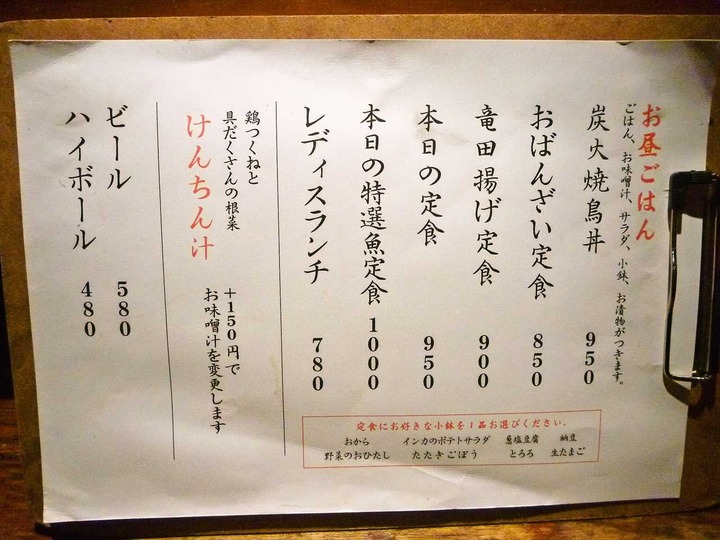 お昼ごはん
ごはん、お味噌汁、サラダ、小鉢、お漬物がつきます。
炭火焼鳥丼 950
おばんざい定食 850
竜田揚げ定食 900
本日の定食 950
本日の特選魚定食 1000
レディスランチ 780
定食にお好きな小鉢を1品お選びください。
おから インカのポテトサラダ 葱塩豆腐 納豆
野菜のおひたし たたきごぼう とろろ 生たまご
鶏つくねと
具だくさんの根菜
けんちん汁
+150円で
お味噌汁を変更します
ビール 580
ハイボール 480